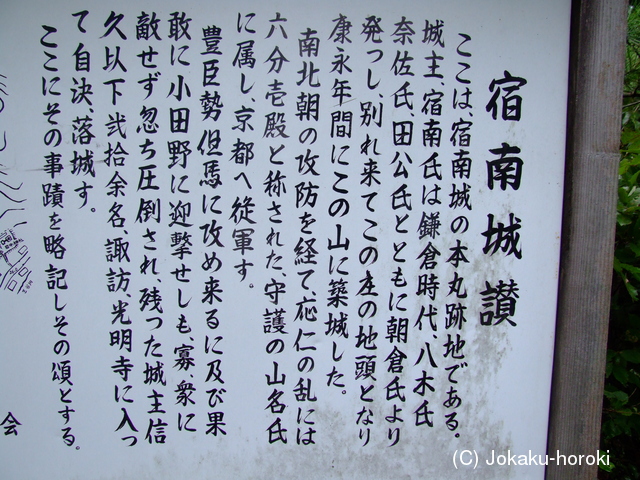 宿南城讃
ここは、宿南城の本丸跡地である。
城主、宿南氏は鎌倉時代、八木氏
奈佐氏、田公氏とともに朝倉氏より
発っし、別れ来てこの庄の地頭となり
康永年間にこの山に築城した。
南北朝の攻防を経て、応仁の乱には
六分壱殿と称された、守護の山名氏
に属し、京都へ従軍す。
豊臣勢但馬に攻め来るに及び果
敢に小田野に迎撃せしも、寡衆に
敵せず忽ち圧倒され、残った城主信
久以下弐拾余名、諏訪、光明寺に入っ
て自決、落城す。
ここにその事蹟を略記しその頌とする。
会
(C) Jokaku-horoki